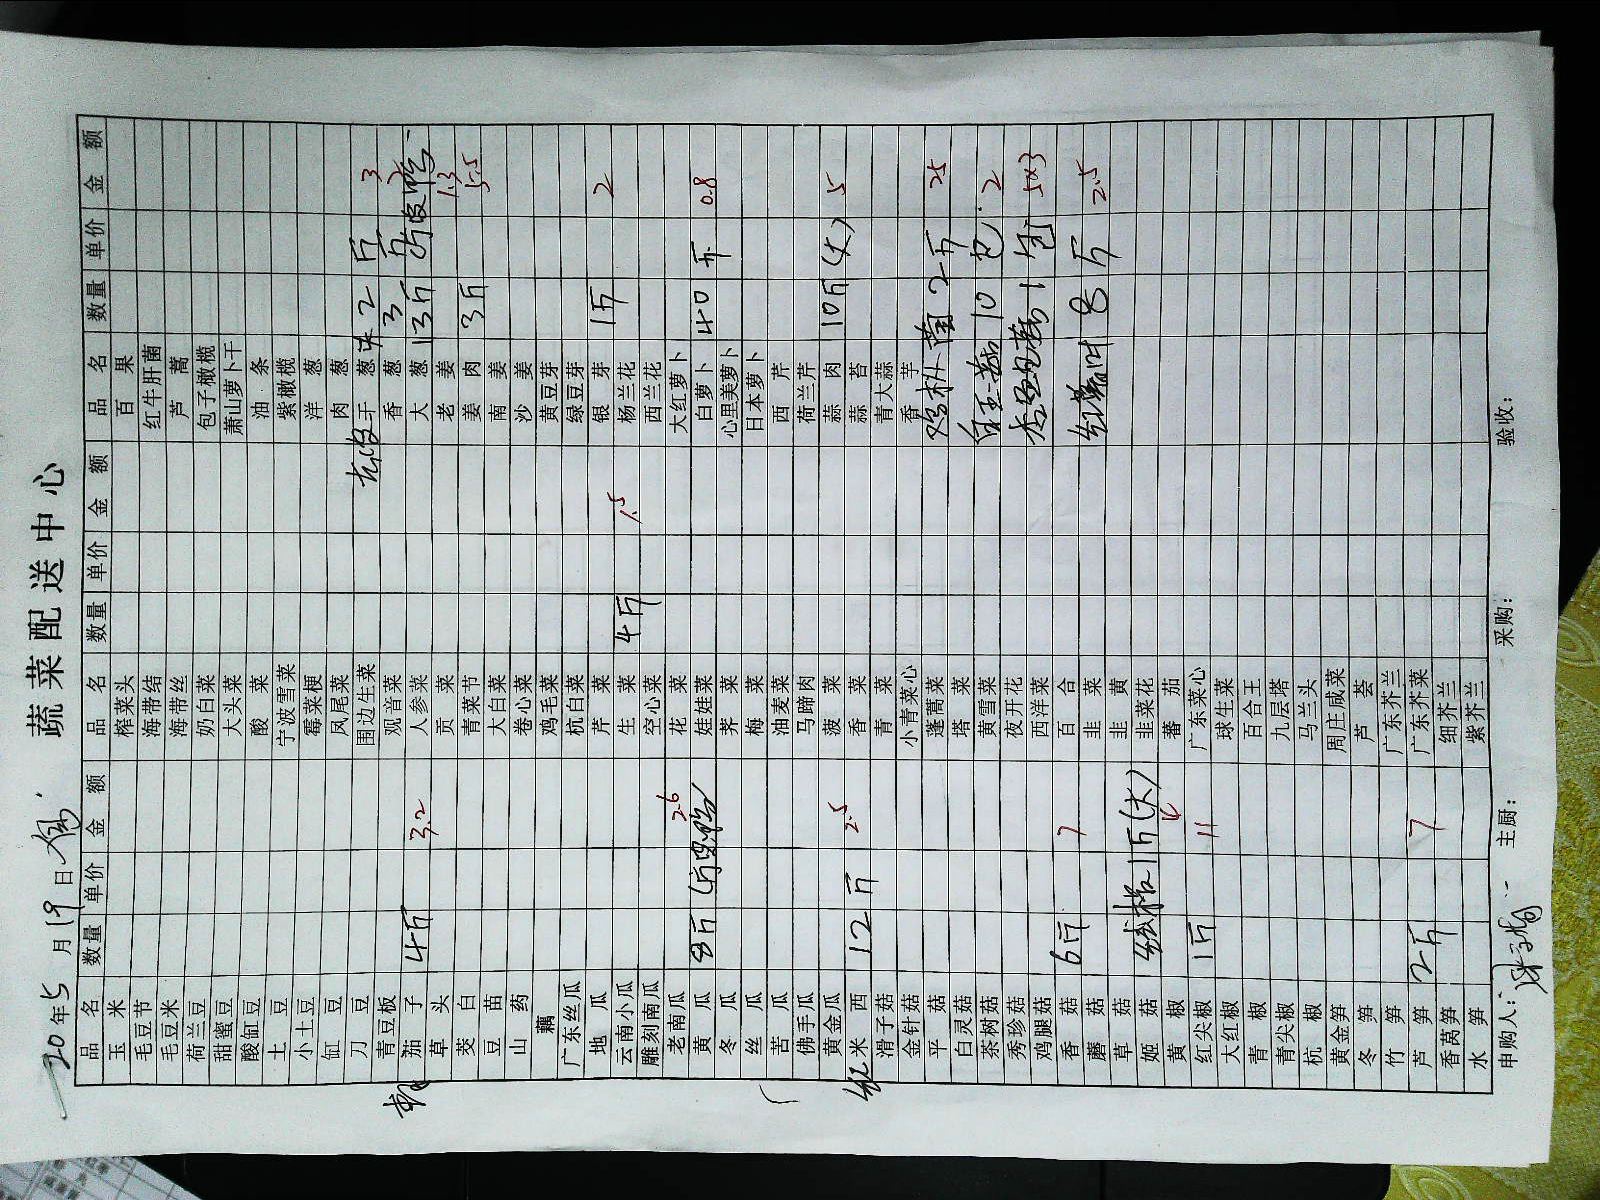 蔬菜配送中心
20年5月19日
品名 数量 单价 金额 品名 数量 单价 金额 品名 数量 单价 金额
玉米 榨菜头 百果
毛豆节 海带结 红牛肝菌
毛豆米 海带丝 芦蒿
荷兰豆 奶白菜 包子橄榄
甜蜜豆 大头菜 萧山萝卜干
酸缸豆 酸菜 油条
土豆 宁波雪菜 紫橄榄
小土豆 霉菜梗 洋葱
缸豆 凤尾菜 肉葱
刀豆 围边生菜 干葱 2斤 3
青豆板 观音菜 香葱 3斤 2
茄子 4斤 3.2 人参菜 大葱 13斤
草头 贡菜 老姜 1.3
茭白 青菜节 姜肉 3斤 5.5
豆苗 大白菜 南姜
山药 卷心菜 沙姜
藕 鸡毛菜 黄豆芽
广东丝瓜 杭白菜 绿豆芽
地瓜 芹菜 银芽 1斤 2
云南小瓜 生菜 4斤 1.5 杨兰花
雕刻南瓜 空心菜 西兰花
老南瓜 2.6 花菜 大红萝卜
黄瓜 8斤 娃娃菜 白萝卜 40斤 0.8
冬瓜 荠菜 心里美萝卜
丝瓜 梅菜 日本萝卜
苦瓜 油麦菜 西芹
佛手瓜 马蹄肉 荷兰芹
黄金瓜 2.5 菠菜 蒜肉 10斤(大) 5
红西米 12斤 香菜 蒜苔
滑子菇 青菜 青大蒜
金针菇 小青菜心 香芋
平菇 蓬蒿菜 2斤 25
白灵菇 塔菜
茶树菇 黄雪菜 白玉菇 10包 2
秀珍菇 夜开花
鸡腿菇 西洋菜 1包 5x3
香菇 6斤 7 百合
蘑菇 韭菜 8斤 2.5
草菇 韭黄
姬菇 1斤(大) 韭菜花
黄椒 蕃茄
红尖椒 1斤 11 广东菜心
大红椒 球生菜
青椒 百合王
青尖椒 九层塔
杭椒 马兰头
黄金笋 周庄咸菜
冬笋 芦荟
竹笋 广东芥兰
芦笋 2斤 7 广东芥菜
香莴笋 细芥兰
水笋 紫芥兰
申购人： 主厨： 采购： 验收：